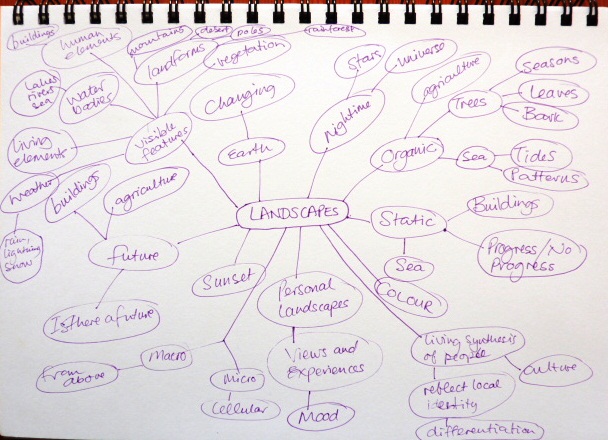 buildings
human
elements
mountains
desert
poles
rainforest
landforms
vegetation
Lakes
rivers
sea
Water
bodies
visible
features
living
elements
weather
rain,
lightning
snow
Changing
Earth
Stars
universe
nightime
agriculture
Organic
Trees
Seasons
Leaves
Bark
Sea
Tides
Patterns
LANDSCAPES
Static
Buildings
Progress/No
Progress
Sea
COLOUR
buildings
agriculture
future
Is there a future
Sunset
Personal
Landscapes
Views and
Experiences
Mood
Macro
From
above
Micro
Cellular
living synthesis
of people
culture
reflect local
identity
differentiation